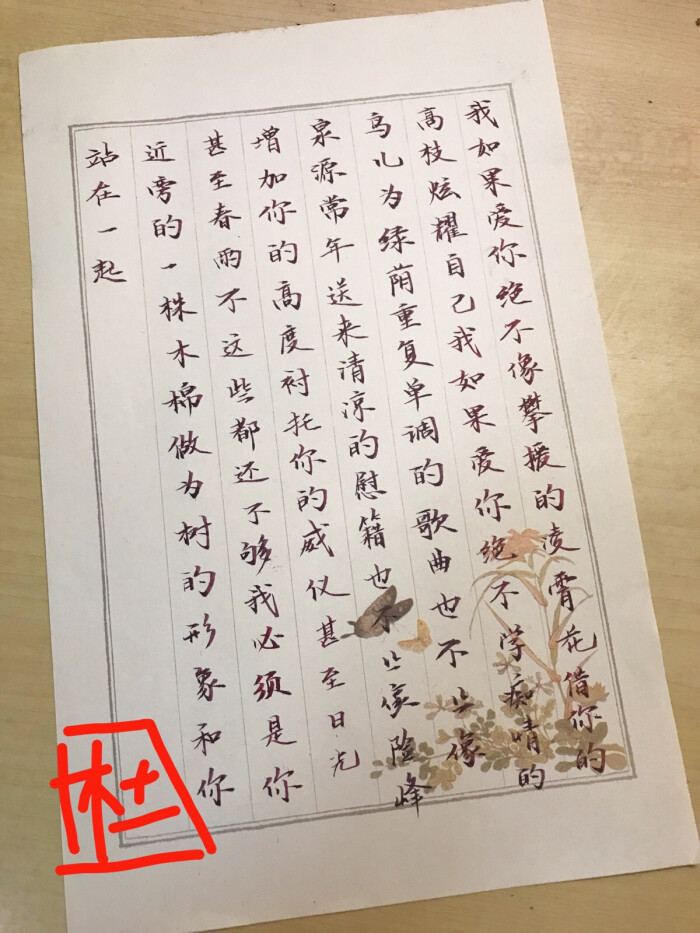 我如果爱你绝不像攀援的凌霄花借你的
高枝炫耀自己我如果爱你绝不学痴情的
鸟儿为绿荫重复单调的歌曲也不止像
泉源常年送来清凉的慰籍也不止像险峰
增加你的高度衬托你的威仪甚至日光
甚至春雨不这些都还不够我必须是你
近旁的一株木棉做为树的形象和你
站在一起
杜